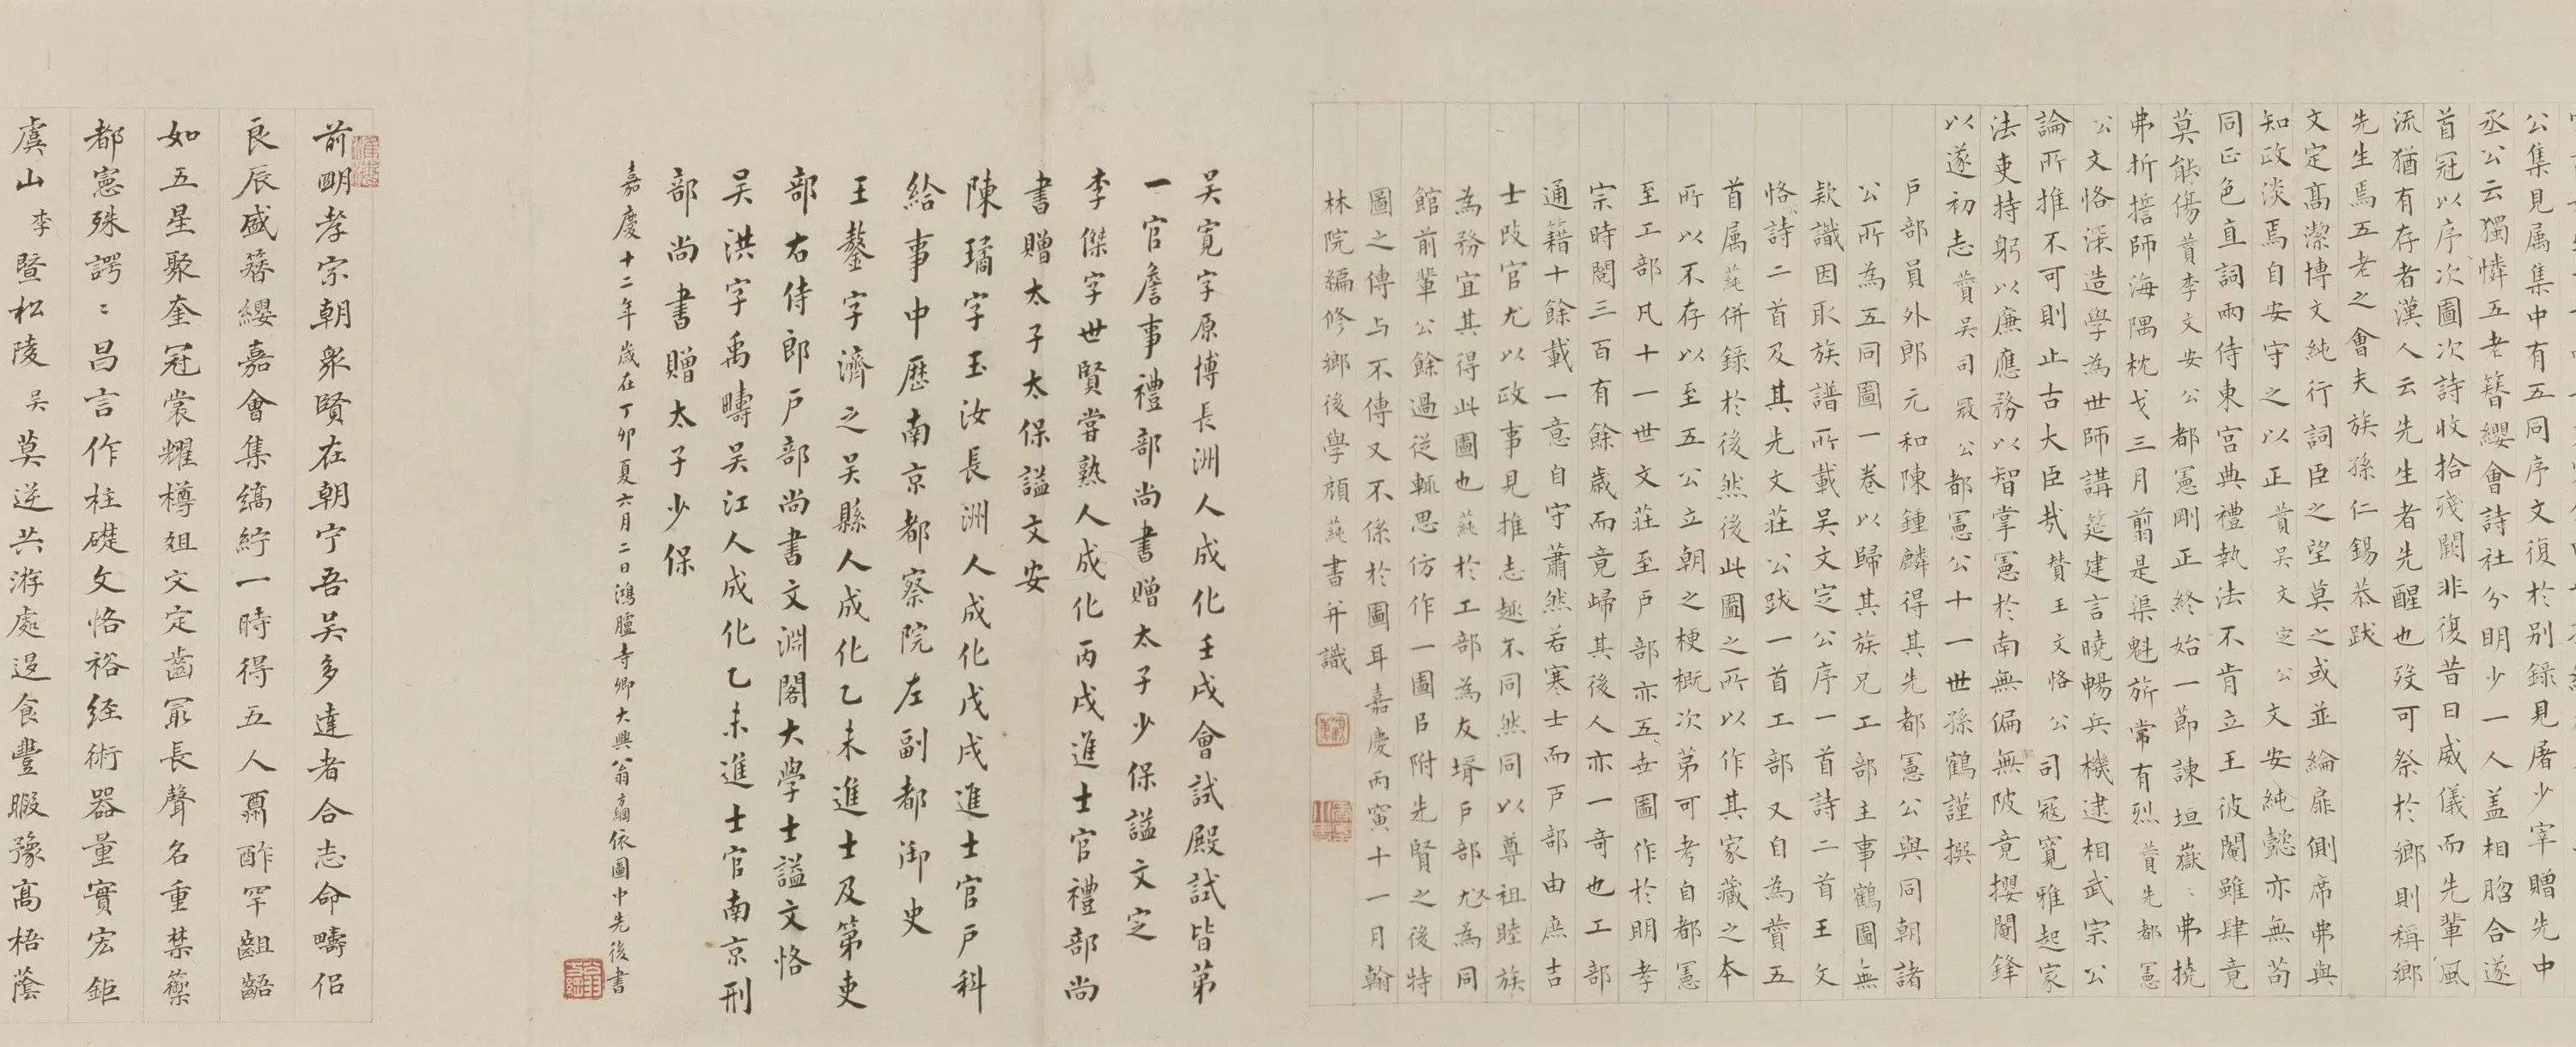 公集見属集中有五同序文復於别録見屠少宰贈先中
丞公云獨憐五老簪纓會詩社分明少一人盖相脗合遂
首冠以序次圖次詩收拾殘闕非復昔日威儀而先輩風
流猶有存者漢人云先生者先醒也歿可祭於鄉則稱鄉
先生焉五老之會夫族孫仁錫恭跋
文定高潔博文純行詞臣之望莫之或並綸扉側席弗與
知政淡焉自安守之以正贊吳文定公文安純懿亦無苟
同正色直詞兩侍東宫典禮執法不肯立王彼閹雖肆竟
莫能傷贊李文安公都憲剛正終始一節諫垣嶽〻弗撓
弗折擔師海隅枕戈三月翦是渠魁旂常有烈贊先都憲
公文恪深造學為世師講筵建言曉暢兵機逮相武宗公
論所推不可則止古大臣哉贊王文恪公司寇寬雅起家
法吏持躬以廉應務以智掌憲於南無偏無陂竟攖閹鋒
以遂初志贊吳司寇公都憲公十一世孫鶴謹撰
戶部員外郎元和陳鍾麟得其先都憲公與同朝諸
公所為五同圖一卷以歸其族兄工部主事鶴圖無
款識因取族譜所載吳文定公序一首詩二首王文
恪公詩二首及其先文莊公跋一首工部又自為贊五
首属蒓併録於後然後此圖之所以作其家藏之本
所以不存以至五公立朝之梗概次第可考自都憲
至工部凡十一世文莊至戶部亦五世圖作於明孝
宗時閱三百有餘歲而竟歸其後人亦一奇也工部
通籍十餘載一意自守蕭然若寒士而戶部由庶吉
士改官尤以政事見推志趣不同然同以尊祖睦族
為務宜其得此圖也蒓於工部為友壻戶部尤為同
館前輩公餘過從輒思仿作一圖㠯附先賢之後特
圖之傳与不傳又不係於圖耳嘉慶丙寅十一月翰
林院編修鄉後學頋蒓書并識
吴寬字原博長洲人成化壬戌會試殿試皆第
一官詹事禮部尚書贈太子少保謚文定
李傑字世賢甞熟人成化丙戌進士官禮部尚
書贈太子太保謚文安
陳璚字玉汝長洲人成化戊戌進士官戶科
給事中歷南京都察院左副都御史
王鏊字濟之吴縣人成化乙未進士及第吏
部右侍郎戶部尚書文淵閣大學士謚文恪
吴洪字禹疇吴江人成化乙未進士官南京刑
部尚書贈太子少保
嘉慶十二年歲在丁卯夏六月二日鴻臚寺卿大興翁方綱依圖中先後書
前明孝宗朝衆賢在朝宁吾吴多達者合志命疇侣
良辰盛簪纓嘉會集縞紵一時得五人鬲酢罕齟齬
如五星聚奎冠裳耀樽俎文定齒冣長聲名重禁籞
都憲殊諤〻昌言作柱礎文恪裕經術器量實宏鉅
虞山李暨松陵吴莫逆共游處退食豐暇豫高梧蔭